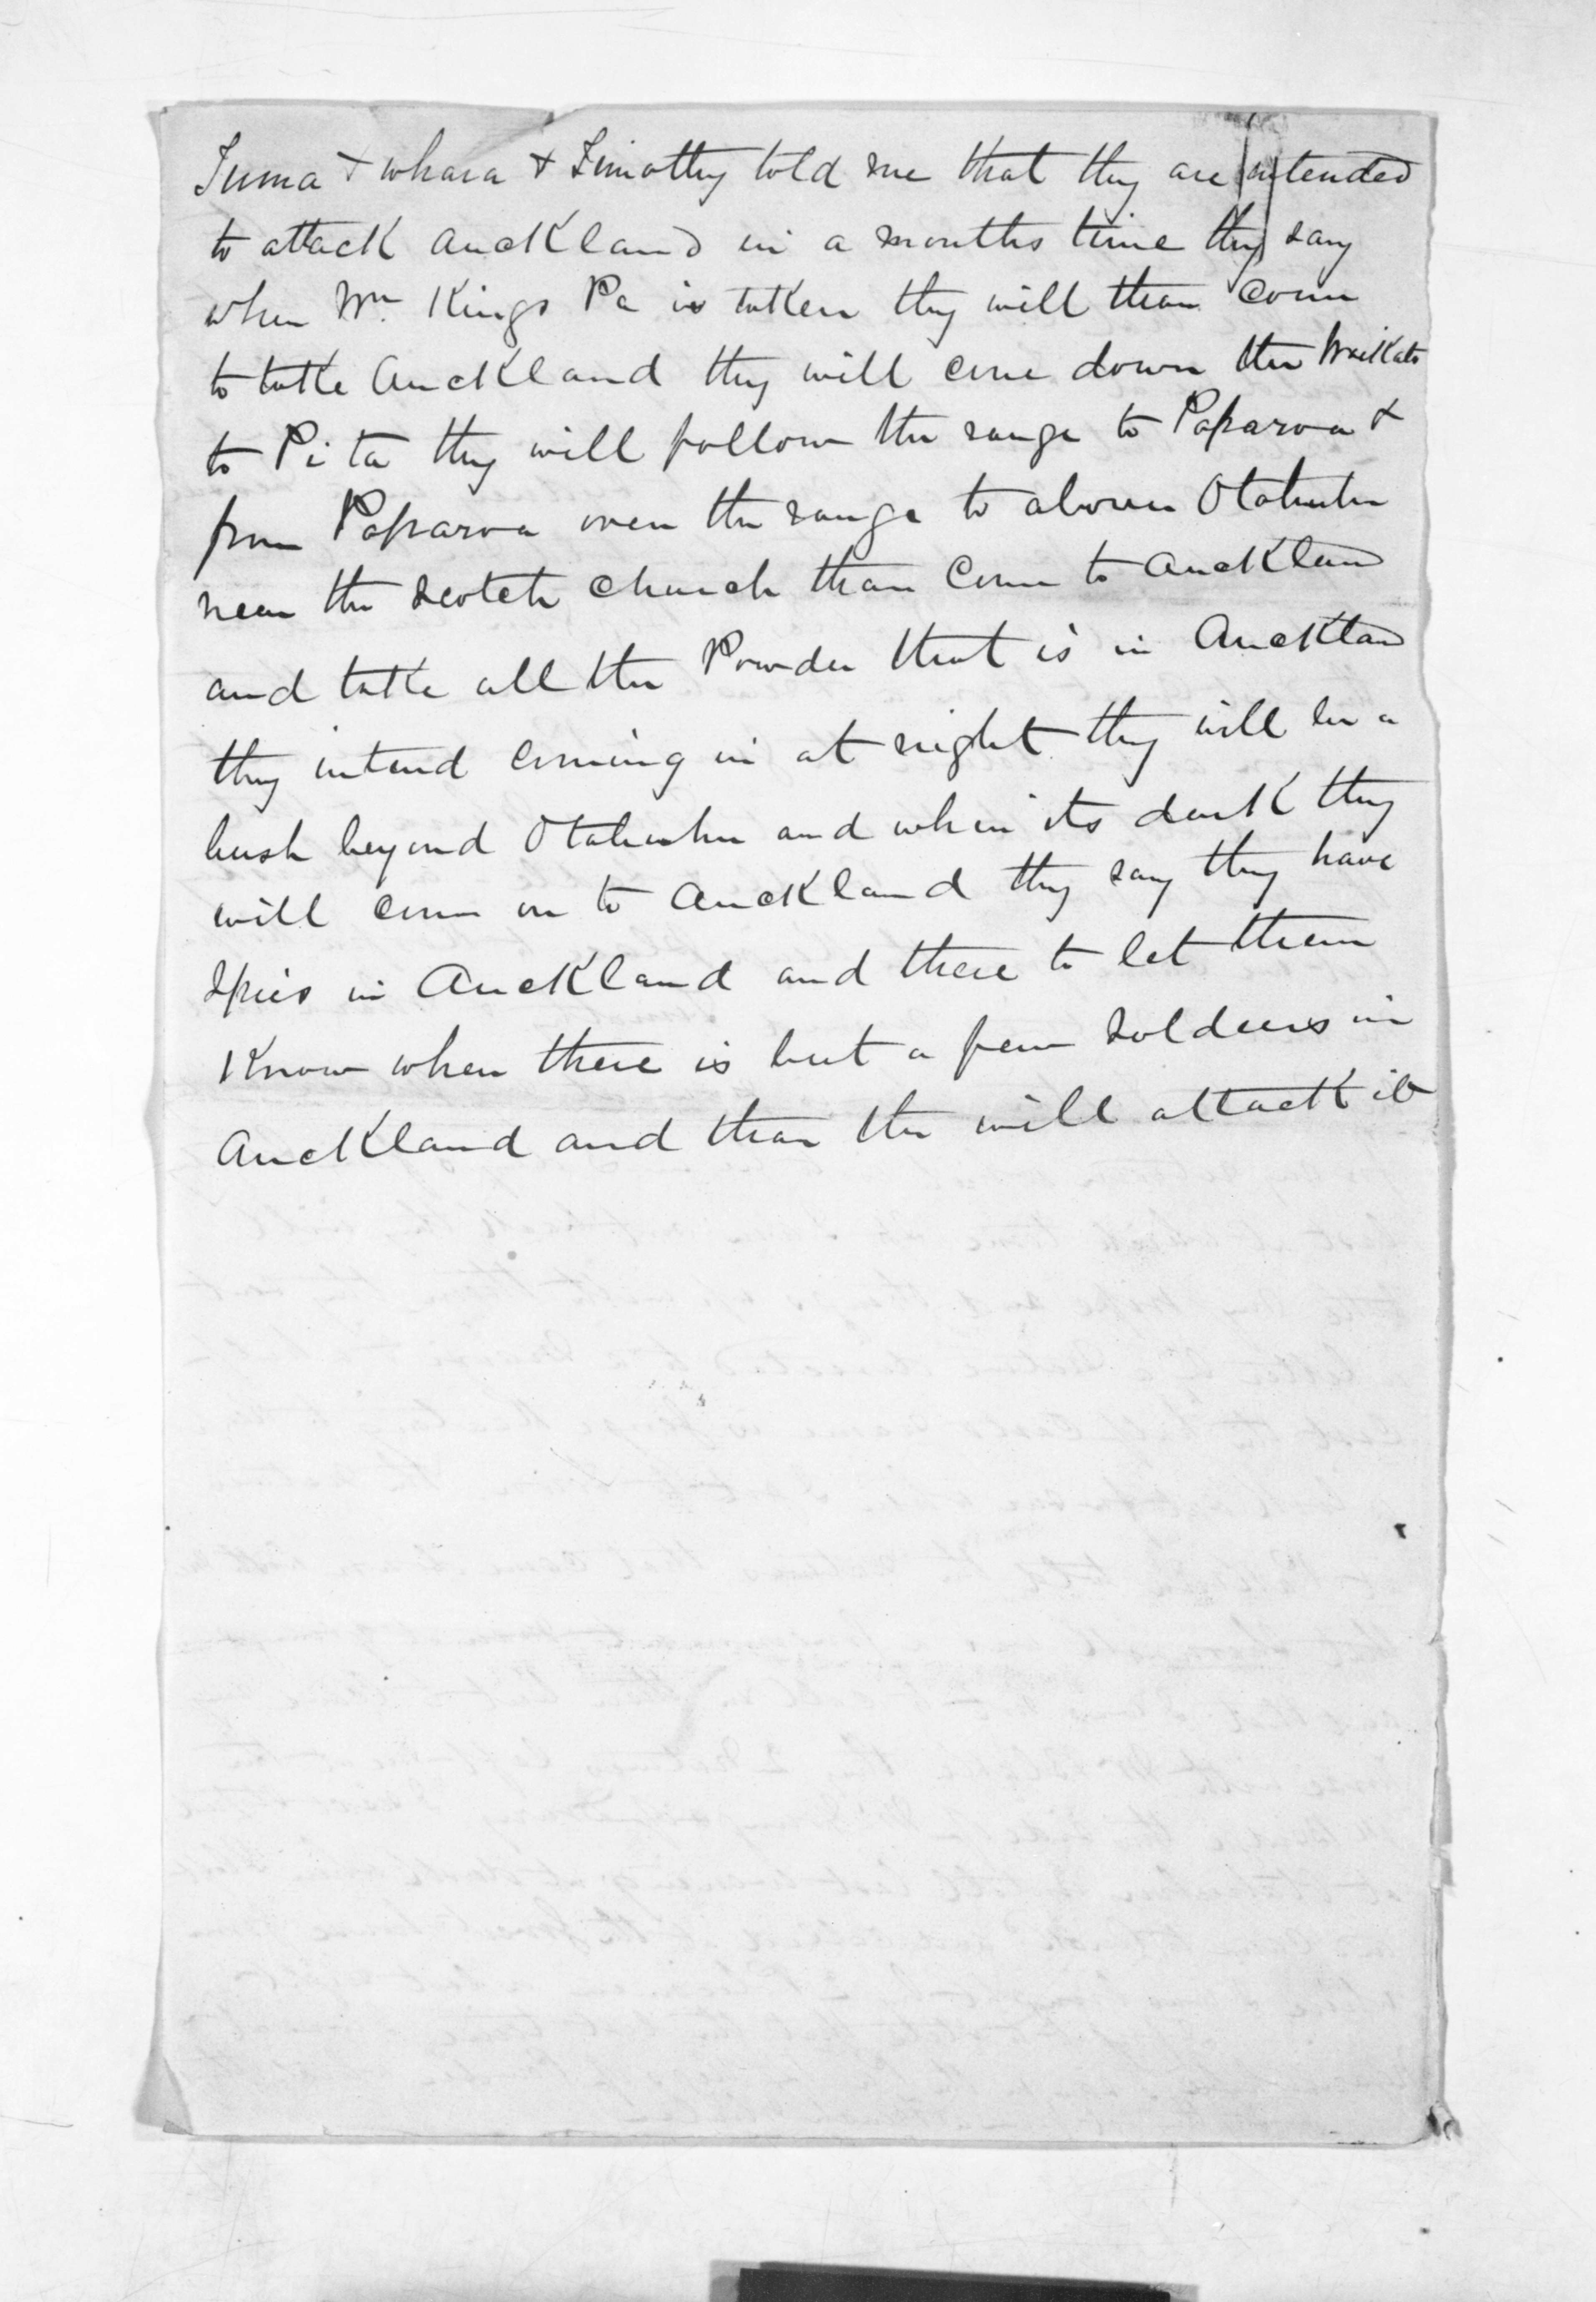 Tuma & whara & Timothy told me that they are intended
to attack Auckland in a months time they say
when Wm Kings Pa is taken they will than come
to take Auckland they will come down the Waikato
to Pi ta they will follow the range to Paparoa &
from Paparoa over the range to above Otahuhu
near the Scotch Church than Come to Aucklan
and take all the Powder that is in Auckland
they intend coming in at night they will be a
bush beyond Otahuhu and when its dark they
will come on to Auckland they say they have
spies in Auckland and there to let them
Know when there is but a few soldiers in
Auckland and than the will attack it